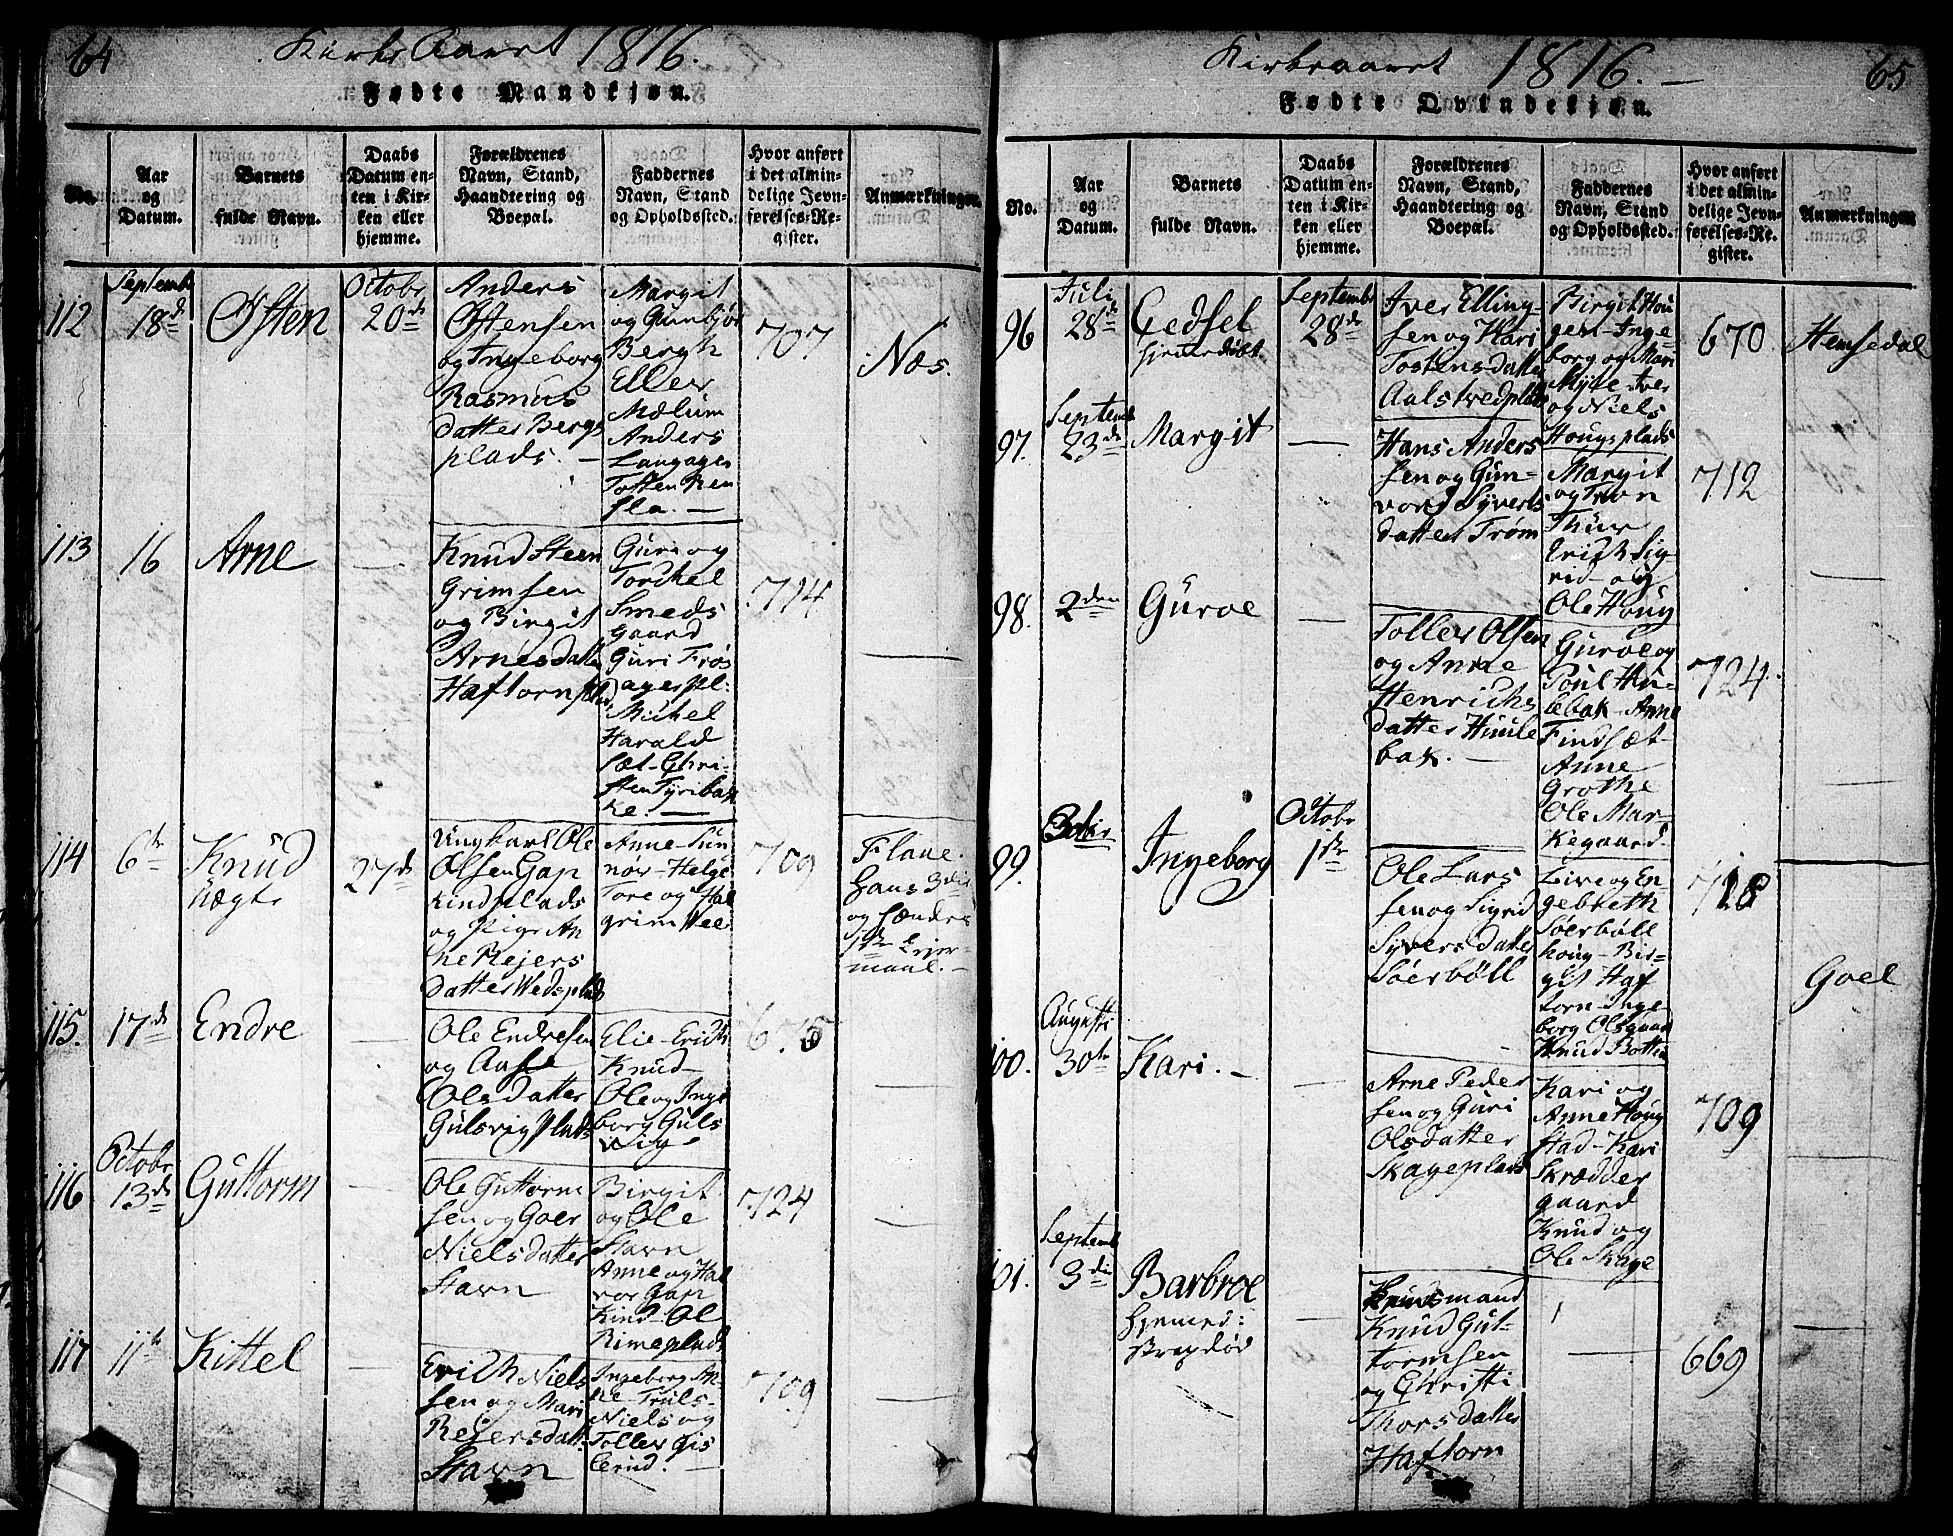 64
Kirke Aaret 1816.
Fødte Mandkjøn.
No.
Aar og Datum.
Barnets fulde Navn.
Daabs Datum enten i Kirken eller hjemme.
Forældrenes Navn, Stand, Haandtering og Boepæl.
Faddernes Navn, Stand og Opholdssted.
Hvor anført i det almindelige Jevnførelses-Register.
Anmærkninger.
112
Septembr
18de
Østen
Octobr
20de
Anders
Østensen
og Ingeborg
Rasmus
datter Bergs
plads. -
Margit
og Gunbjør
Bergh
Eller
Mælum
Anders
Langager
Tosten Ren
sla. -
707
Næs.
113
16
Arne
-
Knud Steen
Grimsen
og Birgit
Arnesdatter
Haftorn
Guri og
Torchel
Smeds
gaard
Guri Frøs
ager pl:
Michel
Harald
sæt- Chri-
sten Tyribak
ke. -
714
-
114
6te
Knud
uægte
27de
Ungkarl Ole
Olsen Gap
kindplads
og Pige An
ne Rejers
datter Wedsplads
Anne- Gun
nør- Helge
Tore og Hal
grim
709
Flaae.
Hans 3die
og hændes
1ste Lejer-
maal. -
115.
17de
Endre
-
Ole Endresen
og Aase
Olsdatter
Gulsvig Plads
Elie- Erich
Knud-
Ole og Inge
borg Guls
vig -
-
116
Octobr
13de
Guttorm
-
Ole Guttorm
sen og Goer
Nielsdatter
Stavn
Birgit
og Ole
Stavn
Anne og Hal
vor Gap
Kind- Ol
Rimeplads
724
-
117
11te
Kittel
-
Erich Niels
sen og Mari
Rejersdatter
Stavn
Ingeborg An-
ne- Truls-
Niels og
Toller Gis
lerud. -
709
-
65
Kirkeaaret 1816. -
Fødte Qvindekjøn.
No.
Aar og Datum.
Barnets fulde Navn.
Daabs Datum enten i Kirken eller hjemme.
Forældrenes Navn, Stand, Haandtering og Boepæl.
Faddernes Navn, Stand og Opholdssted.
Hvor anført i det almindelige Jevnførelses-Register.
Anmærkninger
96
Juli
28de
Gedsel
hjemmedøbt
Septembr
28de
Iver Elling-
sen og Kari
Tostensdatter
Birgit Hou-
gen- Inge-
borg og Mari
Myte- Iver
og Niels
Hougsplads
670
Hemsedal
97.
Septemb
23de
Margit
-
Hans Anders
sen og Gun-
vord Syverts
datter Trøm
Margit
og Tron
Thuv
Erich Sig-
rid- og
Ole Houg
712
-
98.
2den
Guroe
-
Toller Olsen
og Anne
Henrichs
datter Humle
bak. -
Guroe og
Poul Hu-
lebak- Anne
Findsæt-
Anne
Grothe
Ole Mar-
kegaard.
724.
-
99.
Ingeborg
Octobr
1ste
Ole Lars
sen og Sigrid
Syversdatter
Søerbøll
Live og En-
gebreth
Søerbøll
houg- Bir-
git Haf
torn- Inge
borg Olsgaard
Knud Botten
718
Goel
100.
Augusti
30te
Kari. -
-
Arne Peder
sen og Guri
Olsdatter
Skageplads
Kari og
Anne Houg
stad- Kari
Skrædder
gaard
Knud og
Ole Skage
709
-
101.
Septemb
3die
Barbroe
hjemmed:
strax død
Huusmand
Knud Gut-
tormsen
og Christi
Thorsdatter
Haftorn
-
669
-